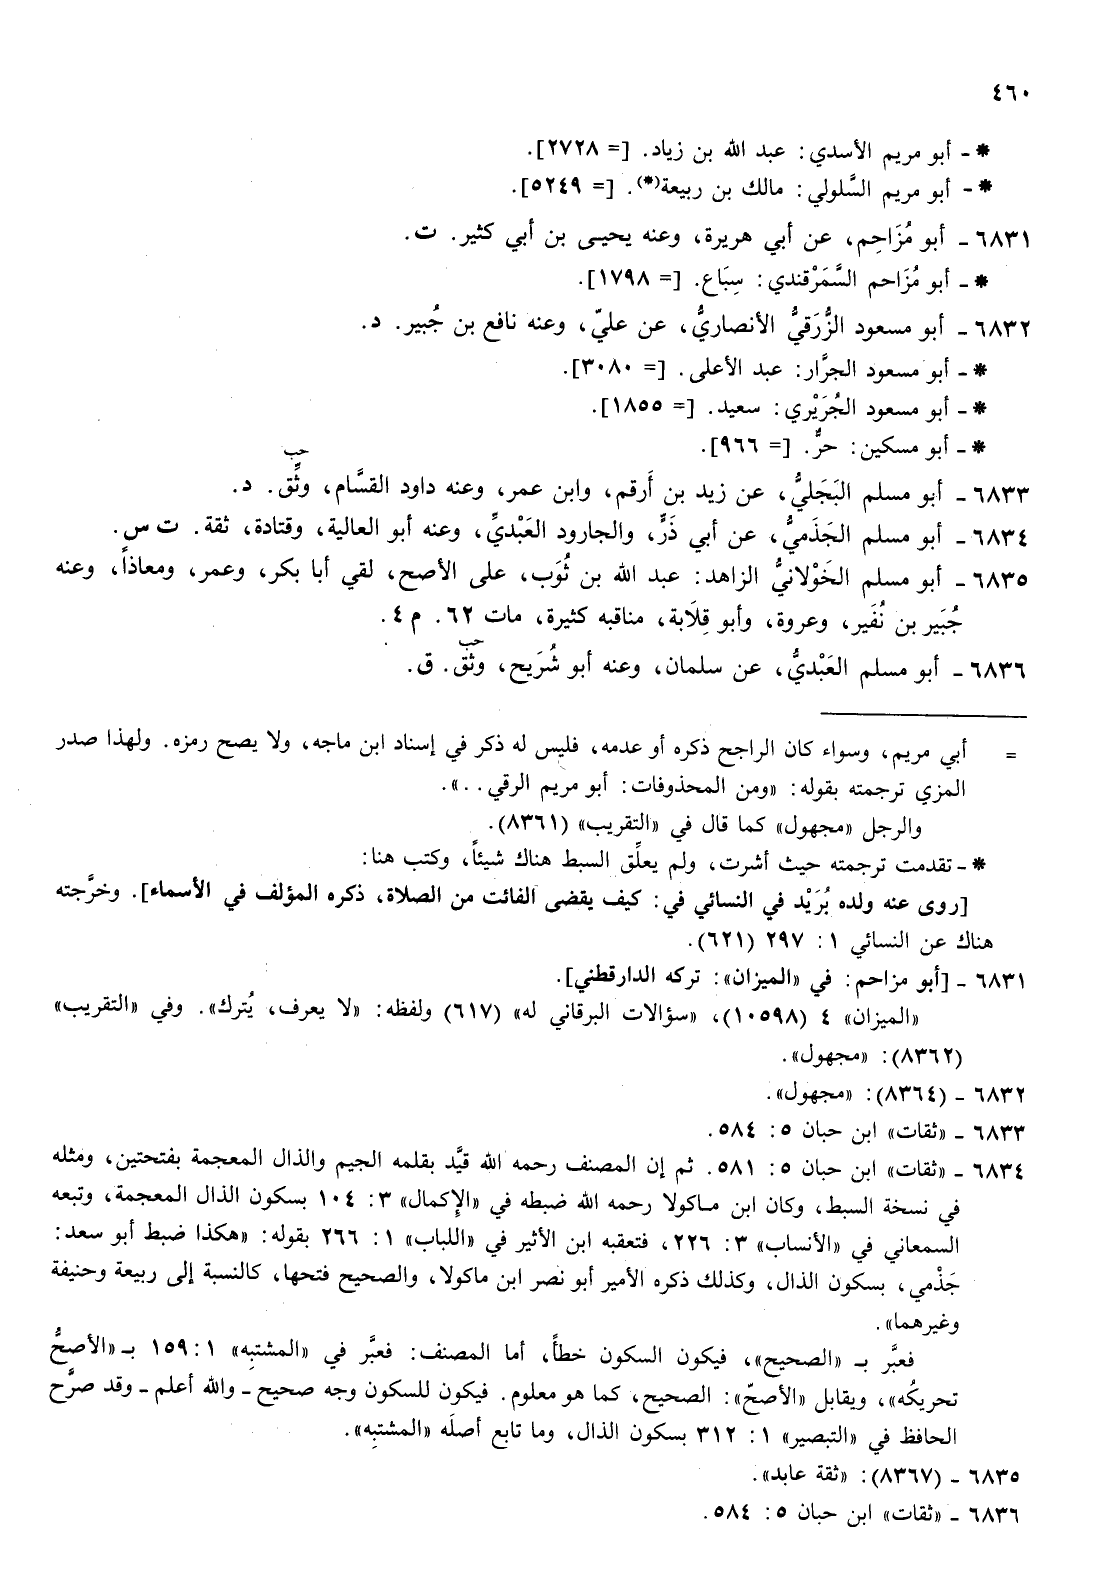 ٤٦٠
* - أبو مريم الأسدي: عبد الله بن زياد. [= ٢٧٢٨].
* - أبو مريم السَّلولي: مالك بن ربيعة(*). [= ٥٢٤٩].
٦٨٣١ - أبو مُزَاحِم، عن أبي هريرة، وعنه يحيى بن أبي كثير. ت.
* - أبو مُزَاحم السَّمَرْقندي: سِبَاع. [= ١٧٩٨].
٦٨٣٢ - أبو مسعود الزُّرَقيُّ الأنصاريُّ، عن عليّ، وعنه نافع بن جُبير. د.
* - أبو مسعود الجرَّار: عبد الأعلى. [= ٣٠٨٠].
* - أبو مسعود الجُرَيْري: سعيد. [= ١٨٥٥].
* - أبو مسكين: حرٌّ. [= ٩٦٦].
حب
٦٨٣٣ - أبو مسلم البَجَليُّ، عن زيد بن أَرقم، وابن عمر، وعنه داود القسَّام، وثِّق. د.
٦٨٣٤ - أبو مسلم الجَذَميُّ، عن أبي ذَرٍّ، والجارود العَبْديِّ، وعنه أبو العالية، وقتادة، ثقة. ت س.
٦٨٣٥ - أبو مسلم الخَوْلانيُّ الزاهد: عبد الله بن ثُوَب، على الأصح، لقي أبا بكر، وعمر، ومعاذاً، وعنه
جُبَير بن نُفَير، وعروة، وأبو قِلَابة، مناقبه كثيرة، مات ٦٢. م ٤.
حب
٦٨٣٦ - أبو مسلم العَبْديُّ، عن سلمان، وعنه أبو شُرَيح، وثُق. ق.
= أبي مريم، وسواء كان الراجح ذكره أو عدمه، فليس له ذكر في إسناد ابن ماجه، ولا يصح رمزه. ولهذا صدر
المزي ترجمته بقوله: «ومن المحذوفات: أبو مريم الرقي..».
والرجل «مجهول» كما قال في «التقريب» (٨٣٦١).
* - تقدمت ترجمته حيث أشرت، ولم يعلِّق السبط هناك شيئاً، وكتب هنا:
[روى عنه ولده بُرَيْد في النسائي في: كيف يقضى الفائت من الصلاة، ذكره المؤلف في الأسماء]. وخرَّجته
هناك عن النسائي ١: ٢٩٧ (٦٢١).
٦٨٣١ - [أبو مزاحم: في «الميزان»: تركه الدارقطني].
«الميزان» ٤ (١٠٥٩٨)، «سؤالات البرقاني له» (٦١٧) ولفظه: «لا يعرف، يُترك». وفي «التقريب»
(٨٣٦٢): «مجهول».
٦٨٣٢ - (٨٣٦٤): «مجهول».
٦٨٣٣ - «ثقات» ابن حبان ٥: ٥٨٤.
٦٨٣٤ - «ثقات» ابن حبان ٥: ٥٨١. ثم إن المصنف رحمه الله قيَّد بقلمه الجيم والذال المعجمة بفتحتين، ومثله
في نسخة السبط، وكان ابن ماكولا رحمه الله ضبطه في «الإكمال» ٣: ١٠٤ بسكون الذال المعجمة، وتبعه
السمعاني في «الأنساب» ٣: ٢٢٦، فتعقبه ابن الأثير في «اللباب» ١: ٢٦٦ بقوله: «هكذا ضبط أبو سعد:
جَذْمي، بسكون الذال، وكذلك ذكره الأمير أبو نصر ابن ماكولا، والصحيح فتحها، كالنسبة إلى ربيعة وحنيفة
وغيرهما».
فعبَّر بـ «الصحيح»، فيكون السكون خطأً، أما المصنف: فعبَّر في «المشتبِه» ١: ١٥٩ بـ «الأصحُّ
تحريكُه»، ويقابل «الأصحّ»: الصحيح، كما هو معلوم. فيكون للسكون وجه صحيح - والله أعلم - وقد صرَّح
الحافظ في «التبصير» ١: ٣١٢ بسكون الذال، وما تابع أصلَه «المشتبِه».
٦٨٣٥ - (٨٣٦٧): «ثقة عابد».
٦٨٣٦ - «ثقات» ابن حبان ٥: ٥٨٤.